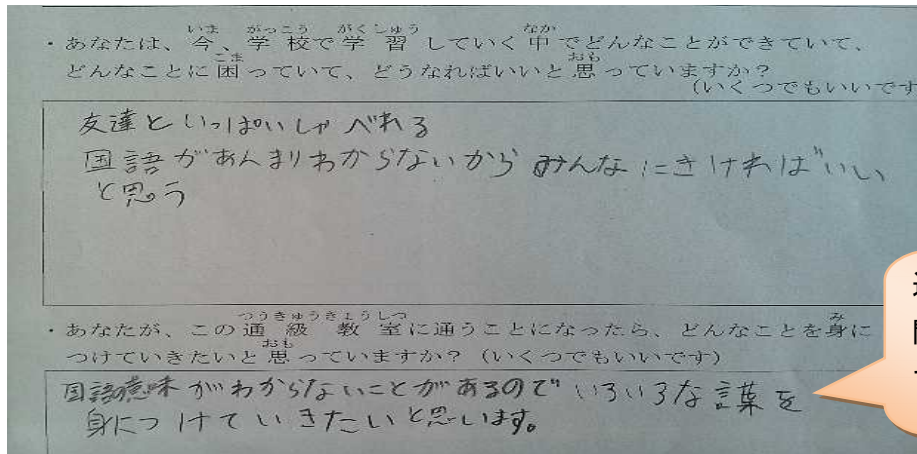 ・あなたは、今、学校で学習していく中でどんなことができていて、
どんなことに困っていて、どうなればいいと思っていますか？
(いくつでもいいです
友達といっぱいしゃべれる
国語があんまりわからないからみんなにきければいい
と思う
・あなたが、この通級教室に通うことになったら、どんなことを身に
つけていきたいと思っていますか？（いくつでもいいです）
国語の意味がわからないことがあるのでいろいろな言葉を
身につけていきたいと思います。